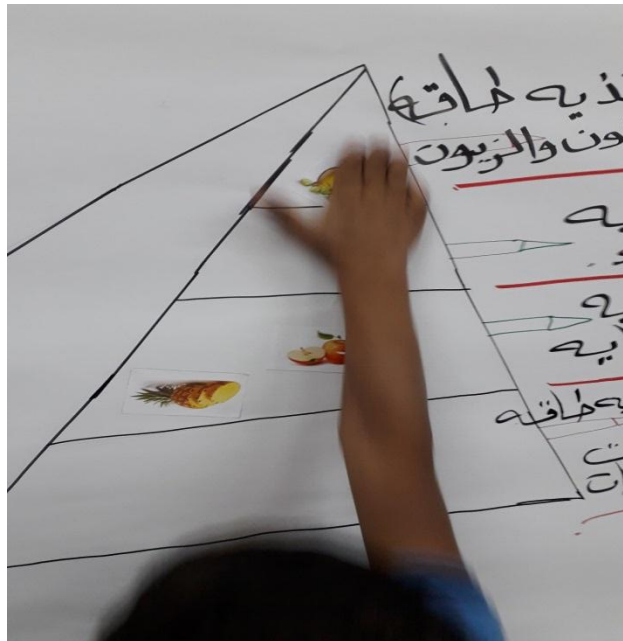 ذيه طاقه)
ون والزيون
يه
يه
يه
يه طاقه
ت
ات